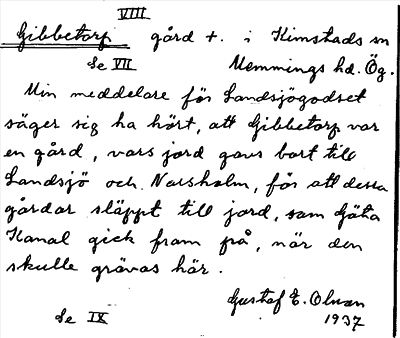 VIII
Gibbetorp gård +. i Kimstads sn
Se VII Memmings hd. Ög.
Min meddelare för Landsjögodset
säger sig ha hört, att Gibbetorp var
en gård, vars jord gavs bort till
Landsjö och Norsholm, för att dessa
gårdar släppt till jord, som Göta
Kanal gick fram på, när den
skulle grävas här.
Gustaf E. Olwan
Se IX 1937